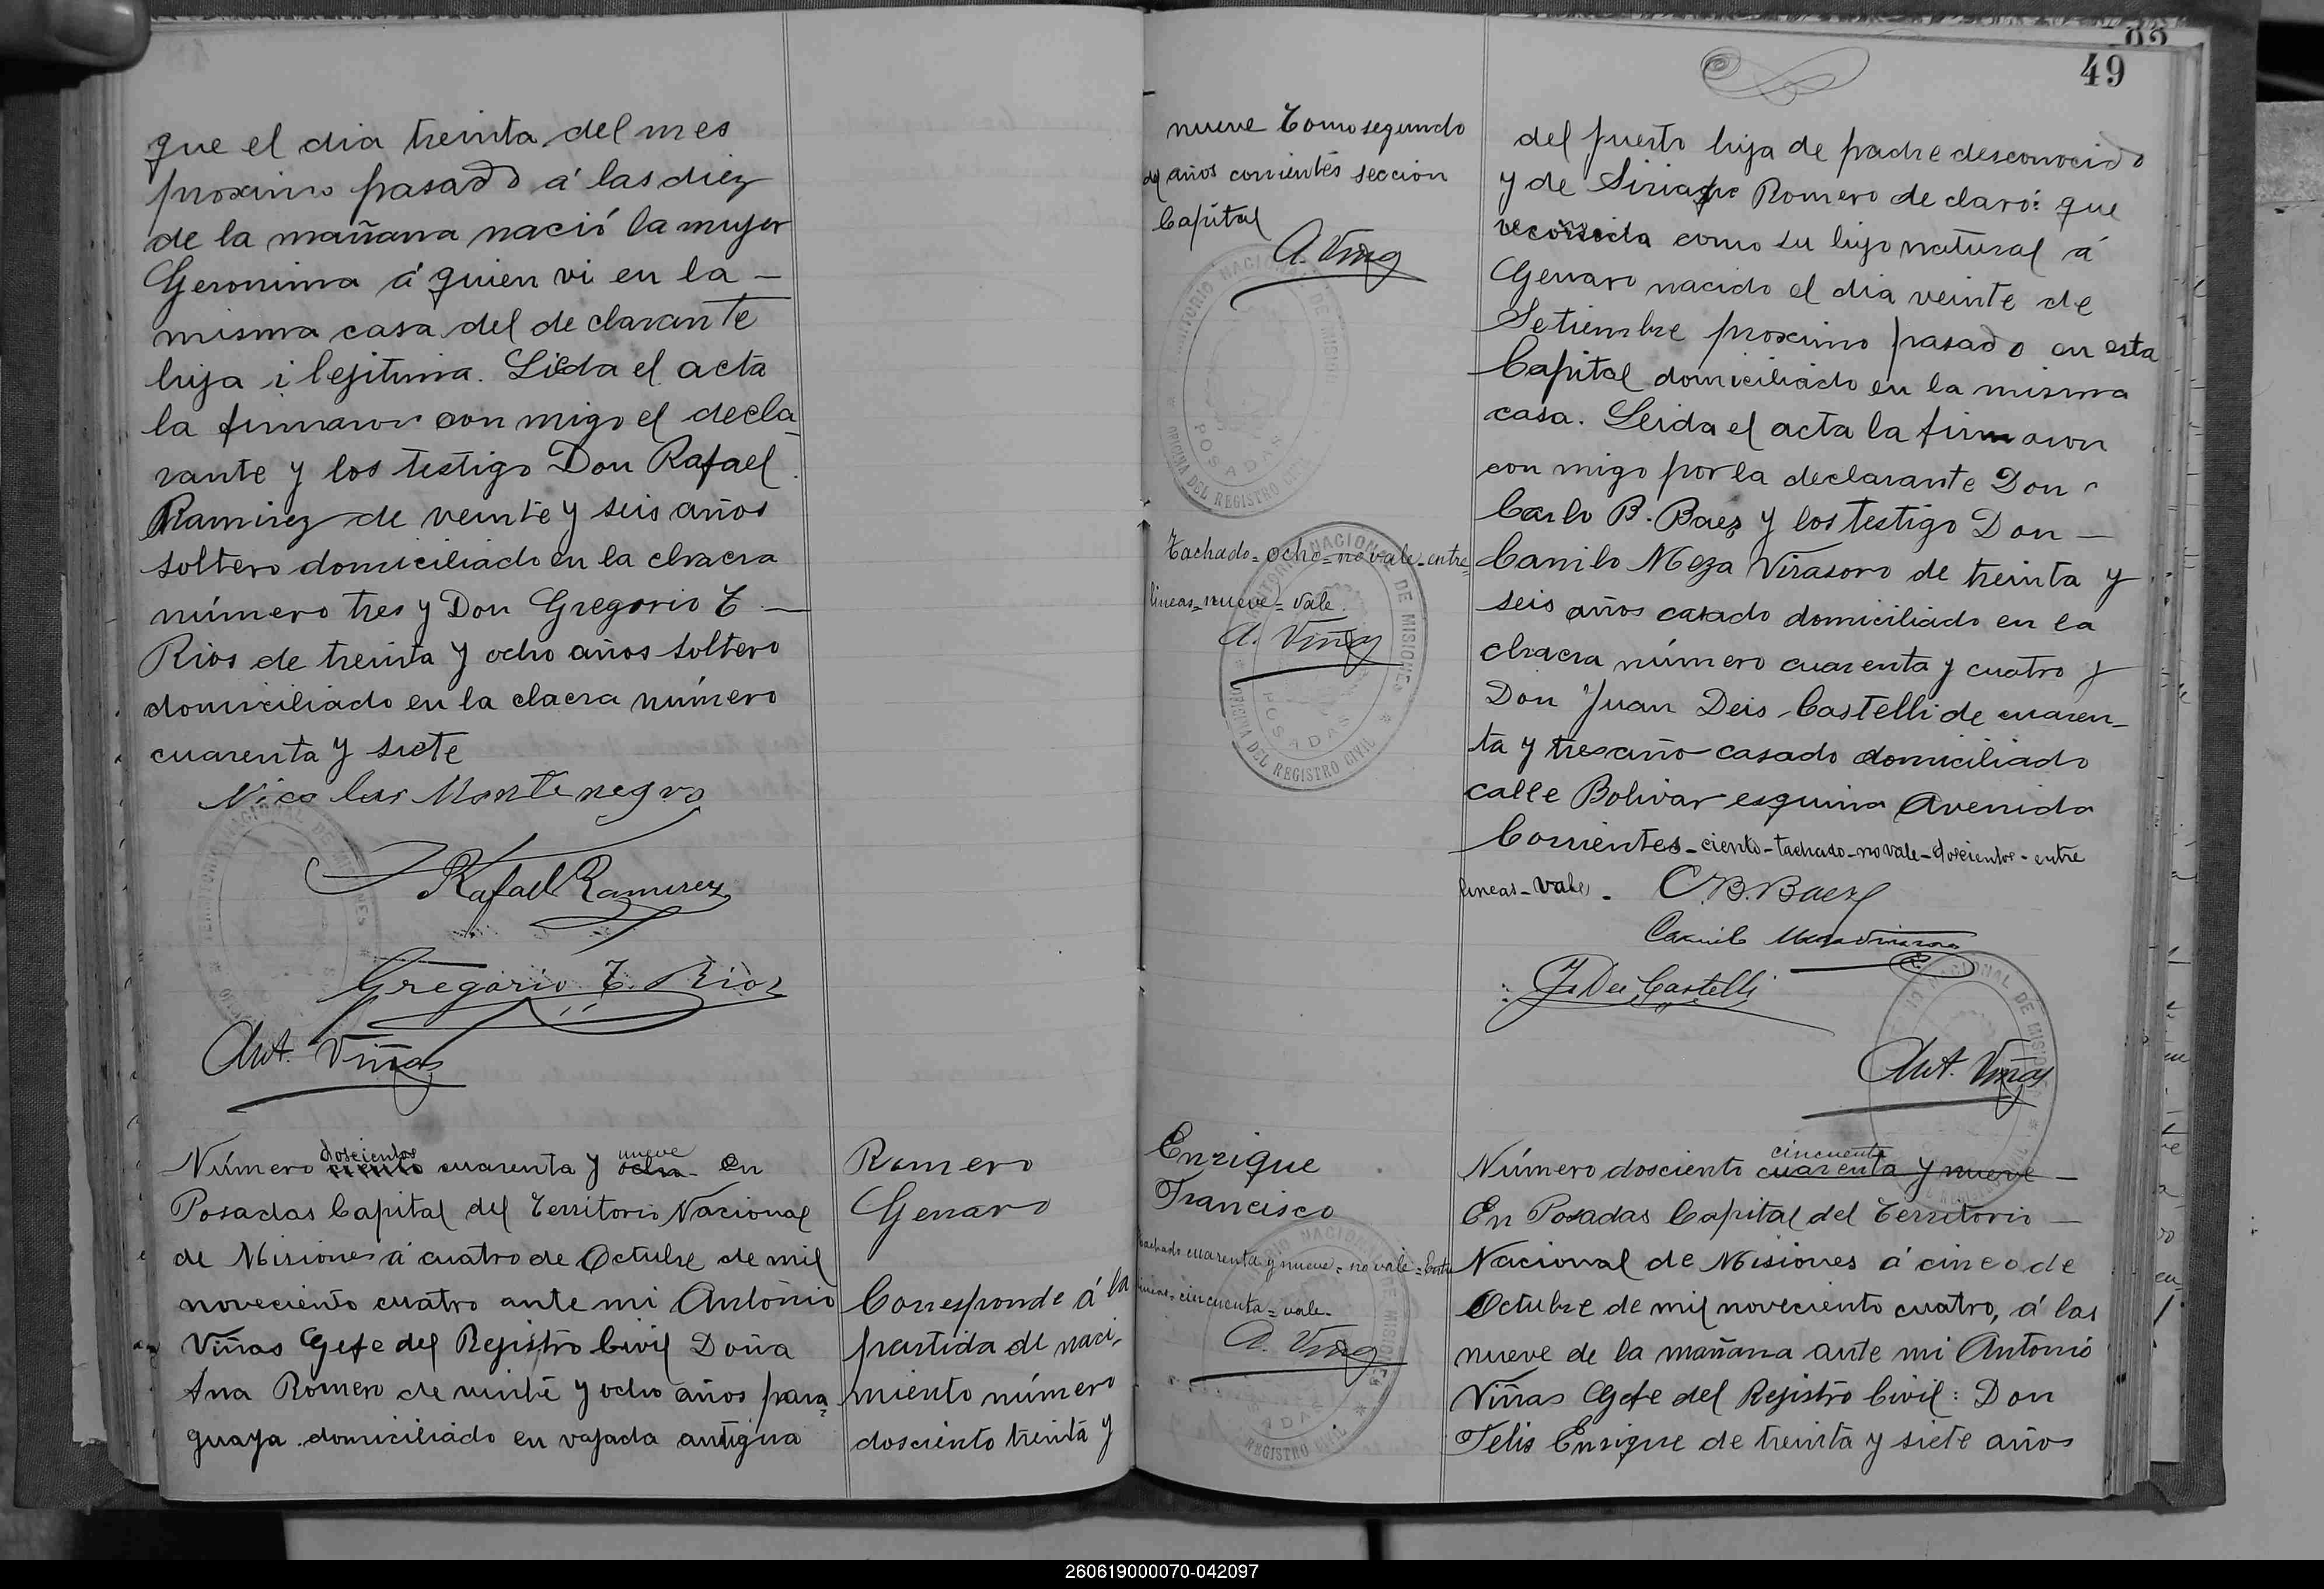 que el dia treinta del mes
proximo pasado á las diez
de la mañana nació la mujer
Geronima á quien vi en la —
misma casa del declarante
hija ilejitima. Lieda el acta
la firmaron con migo el decla_
rante y los testigo Don Rafael
Ramirez de veinte y seis años
soltero domiciliado en la chacra
número tres y Don Gregorio T —
Rios de treinta y ocho años soltero
domiciliado en la chacra número
cuarenta y siete
Nicolas Montenegro
Rafael Ramirez
Gregorio T. Rios
Ant. Viñas
Número ciento doscientos cuarenta y ocho nueve En
Posadas Capital del Territorio Nacional
de Misiones á cuatro de Octubre de mil
noveciento cuatro ante mi Antonio
Viñas Gefe del Rejistro Civil Doña
Ana Romero de veinte y ocho años para=
guaya domiciliado en vajada antigua
Romero
Genaro
Corresponde á la
partida de naci-
miento número
dosciento treinta y
49
nueve Tomo segundo
del años corrientes sección
Capital
A. Viñas
TERRITORIO NACIONAL DE MISIONES
POSADAS
OFICINA DEL REGISTRO CIVIL
Tachado=ocho=no vale=entre=
lineas=nueve=vale.
A. Viñas
del puerto hija de padre desconocido
y de Romero declaró: que
reconocida como su hijo natural á
Genaro nacido el dia veinte de
Setiembre proximo pasado en esta
Capital domiciliado en la misma
casa. Leida el acta la firmaron
con migo por la declarante Don
Carlo B. Baez y los testigo Don —
Camilo Meza Virasoro de treinta y
seis años casado domiciliado en la
chacra número cuarenta y cuatro y
Don Juan Deis Castelli de cuaren_
ta y tres año casado domiciliado
calle Bolivar esquina Avenida
Corrientes_ciento_tachado_no vale_doscientos-entre
lineas_vale.
C. B. Baez
Camilo Meza Virasoro
J. Dei Castelli
Ant. Viñas
Enrique
Francisco
Tachado cuarenta y nueve=no vale=Entre
lineas=cincuenta=vale-
A. Viñas
Número dosciento cuarenta y nueve cincuenta —
En Posadas Capital del Territorio —
Nacional de Misiones á cinco de
Octubre de mil noveciento cuatro, á las
nueve de la mañana ante mi Antonio
Viñas Gefe del Rejistro Civil: Don
Felis Enrique de treinta y siete años
260619000070-042097